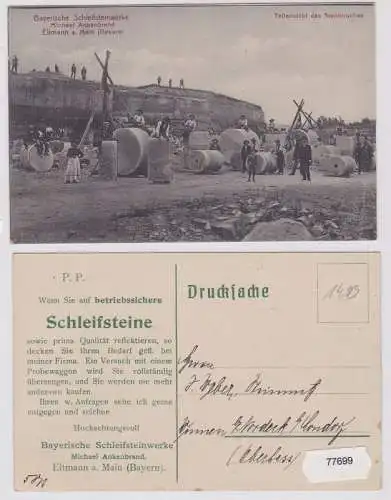 Bayerische Schleifsteinwerke
Michael Ankenbrand
Eltmann a. Main (Bayern)
Teilansicht des Steinbruches
P. P.
Wenn Sie auf betriebssichere
Schleifsteine
sowie prima Qualität reflektieren, so
decken Sie Ihren Bedarf gefl. bei
meiner Firma. Ein Versuch mit einem
Probewaggon wird Sie vollständig
überzeugen, und Sie werden nie mehr
anderswo kaufen.
Ihren w. Anfragen sehe ich gerne
entgegen und zeichne
Hochachtungsvoll
Bayerische Schleifsteinwerke
Michael Ankenbrand.
Eltmann a. Main (Bayern).
Drucksache
Herrn
(Oberhess)
77699